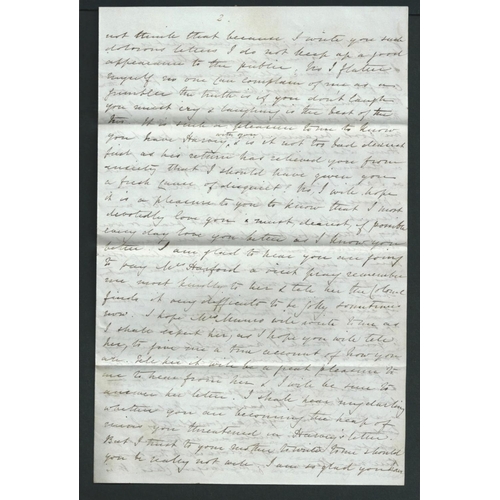 2
not think that because I write you such
dolorous letters I do not keep up a good
appearance to the public. No I flatter
myself no one can complain of me as a
grumbler the truth is if you don't laugh
you must cry & laughing is the best of the
two. It is such a pleasure to me to know
you have Harry with you, & is it not too bad dearest
just as his return has relieved you from
anxiety that I should have given you
a fresh cause of disquiet! No I will hope
it is a pleasure to you to know that I most
devotedly love you & most dearest if possible
every day love you better as I know you
better. I am glad to hear you are going
to pay Mrs Harford a visit pray remember
me most kindly to her & tell her the Colonel
finds it very difficult to be jolly sometimes
now. I hope will write to me as
I shall expect her, as I hope you will tell
her, to give me a true account of how you
are. Tell her it will be a great pleasure to
me to hear from her, & I will be sure to
answer her letter. I shall hear my darling
whether you are becoming the heap of
you threatened in Harry's letter.
But I trust to your mother to write to me should
you be really not well. I am so glad you